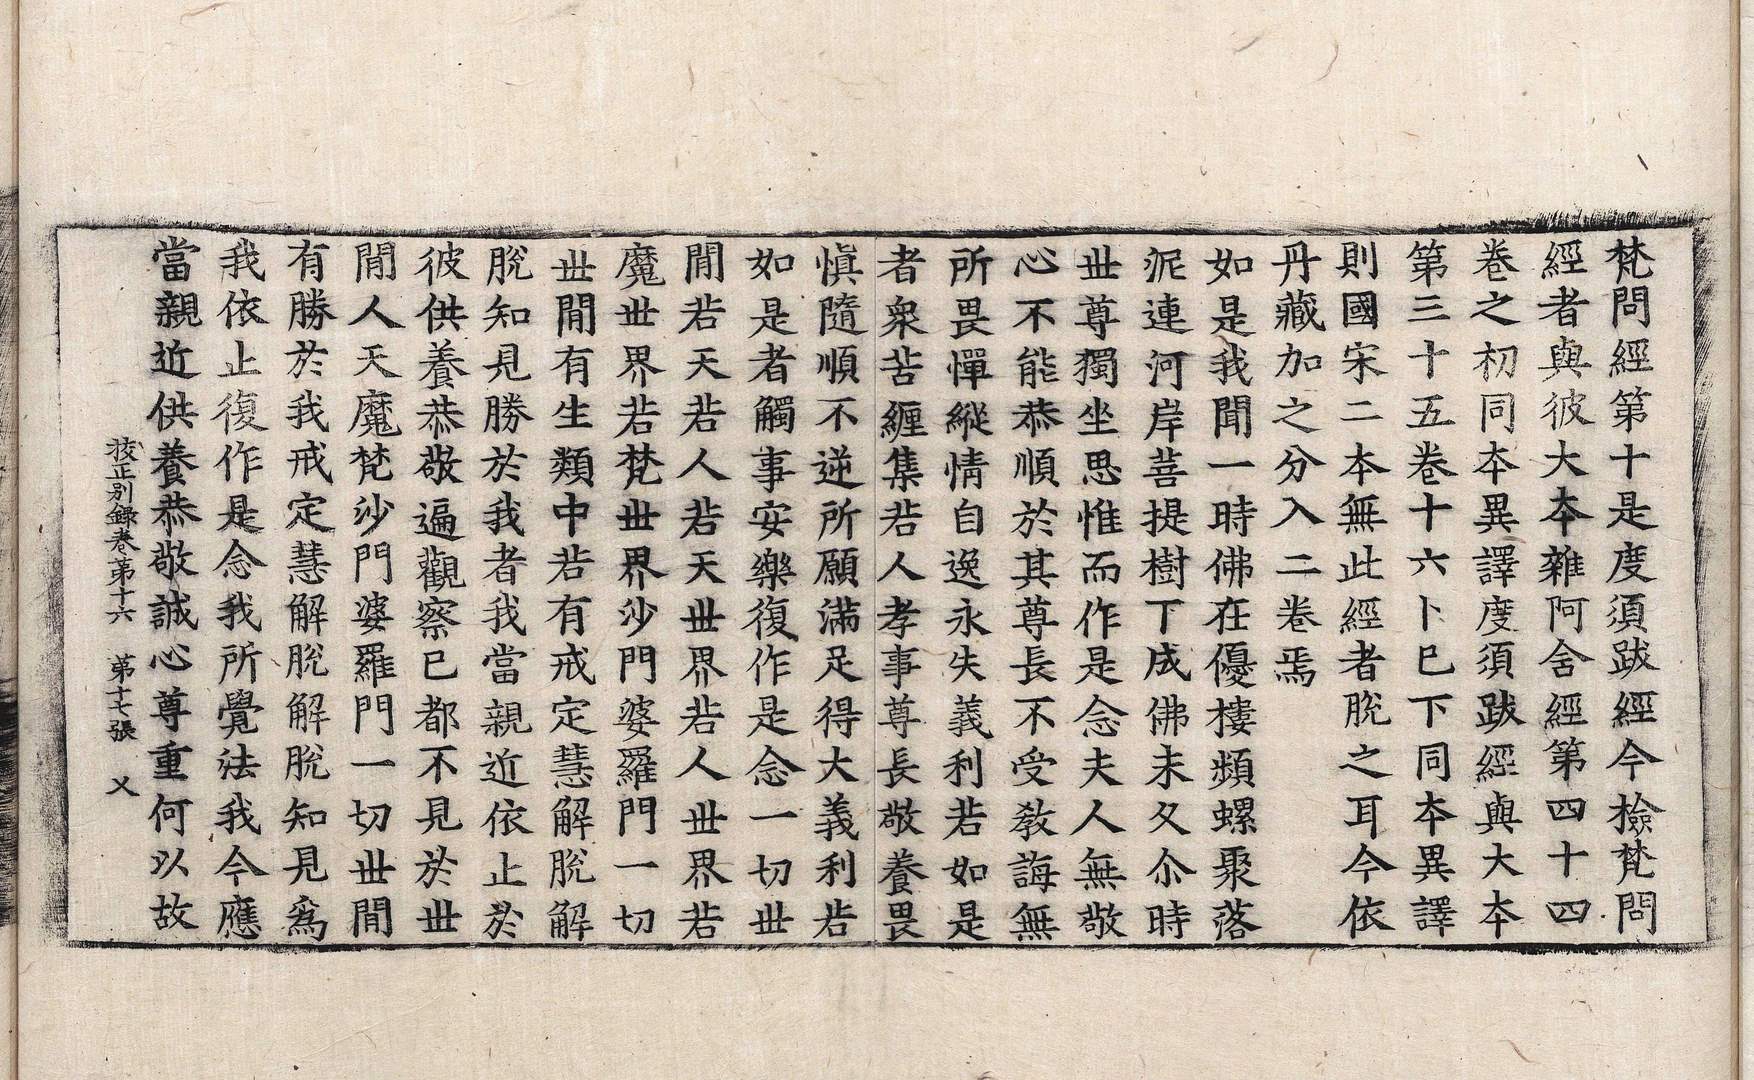 梵問經第十是度須跋經今檢梵問
經者與彼大本雜阿含經第四十四
卷之初同本異譯度須跋經與大本
第三十五卷十六卜巳下同本異譯
則國宋二本無此經者脫之耳今依
丹藏加之分入二卷焉
如是我聞一時佛在優樓頻螺聚落
泥連河岸菩提樹下成佛未久尒時
世尊獨坐思惟而作是念夫人無敬
心不能恭順於其尊長不受教誨無
所畏憚縱情自逸永失義利若如是
者衆苦纏集若人孝事尊長敬養畏
愼隨順不逆所願滿足得大義利若
如是者觸事安樂復作是念一切世
閒若天若人若天世界若人世界若
魔世界若梵世界沙門婆羅門一切
世閒有生類中若有戒定慧解脫解
脫知見勝於我者我當親近依止於
彼供養恭敬遍觀察已都不見於世
閒人天魔梵沙門婆羅門一切世閒
有勝於我戒定慧解脫解脫知見爲
我依止復作是念我所覺法我今應
當親近供養恭敬誠心尊重何以故
挍正別錄卷第十六 第十七張 乂